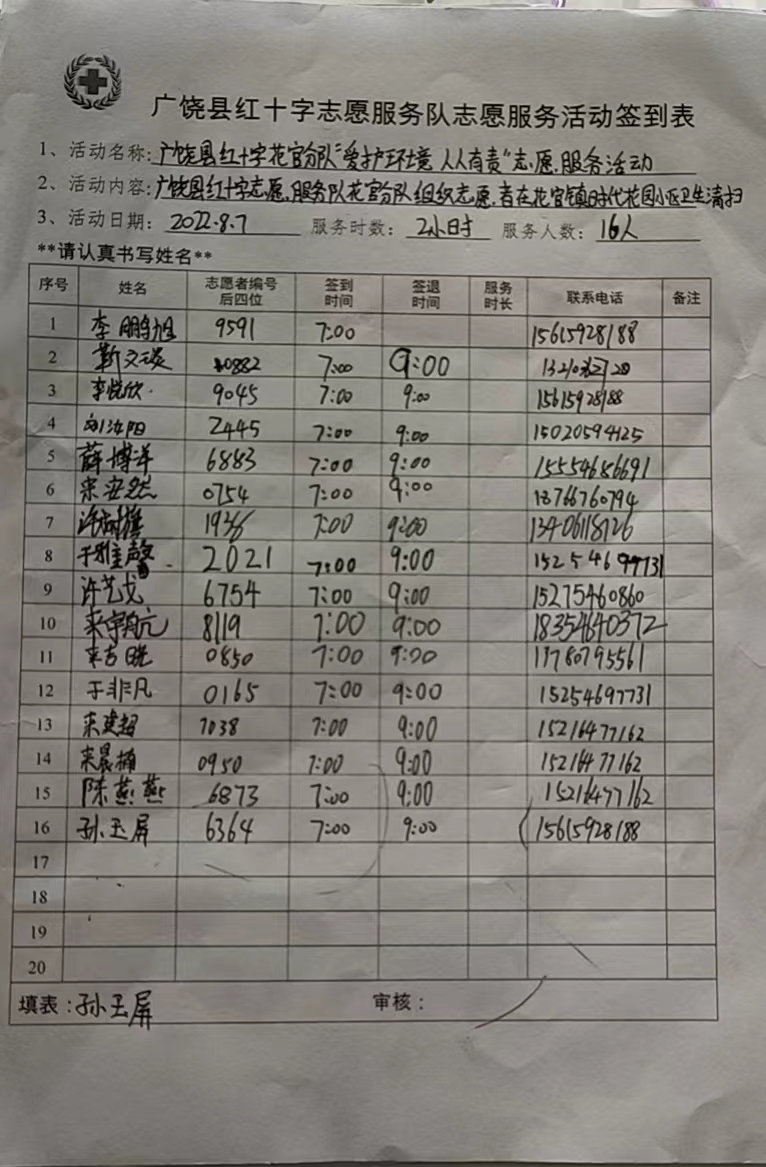 广饶县红十字志愿服务队志愿服务活动签到表
1、活动名称:广饶县红十字花官分队"爱护环境 人人有责"志愿服务活动
2、活动内容:广饶县红十字志愿服务队花官分队组织志愿者在花官镇时代花园小区卫生清扫
3、活动日期: 2022.8.7 服务时数: 2小时 服务人数: 16人
**请认真书写姓名**
序号 姓名 志愿者编号后四位 签到时间 签退时间 服务时长 联系电话 备注
1 李鹏旭 9591 7:00 15615928188
2 靳文琰 0882 7:00 9:00
3 李悦欣 9045 7:00 9:00 15615928188
4 刘汝阳 2445 7:00 9:00 15020594125
5 薛博洋 6883 7:00 9:00 15554686691
6 宋安然 0754 7:00 9:00 18766760794
7 1936 7:00 9:00 13406118726
8 于雅馨 2021 7:00 9:00
9 许艺戈 6754 7:00 9:00 15275460860
10 来宇航 8119 7:00 9:00 18354640372
11 来吉晓 0850 7:00 9:00 11780795561
12 于非凡 0165 7:00 9:00 15254697731
13 来建超 7038 7:00 9:00 15216477162
14 来晨楠 0950 7:00 9:00 15216477162
15 陈燕燕 6873 7:00 9:00 15216477162
16 孙玉屏 6364 7:00 9:00 15615928188
17
18
19
20
填表:孙玉屏 审核: